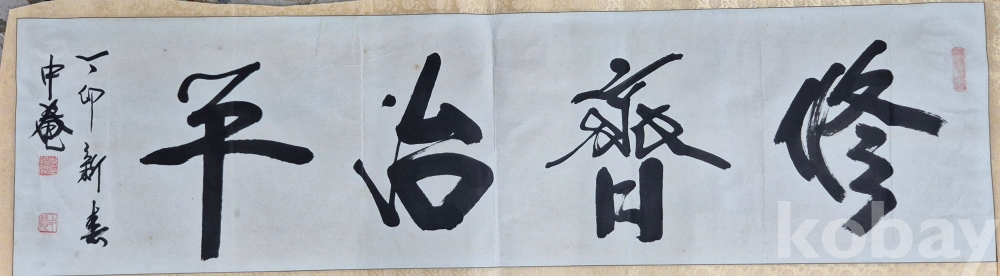 修齊治平
丁卯新春
中菴
kobay